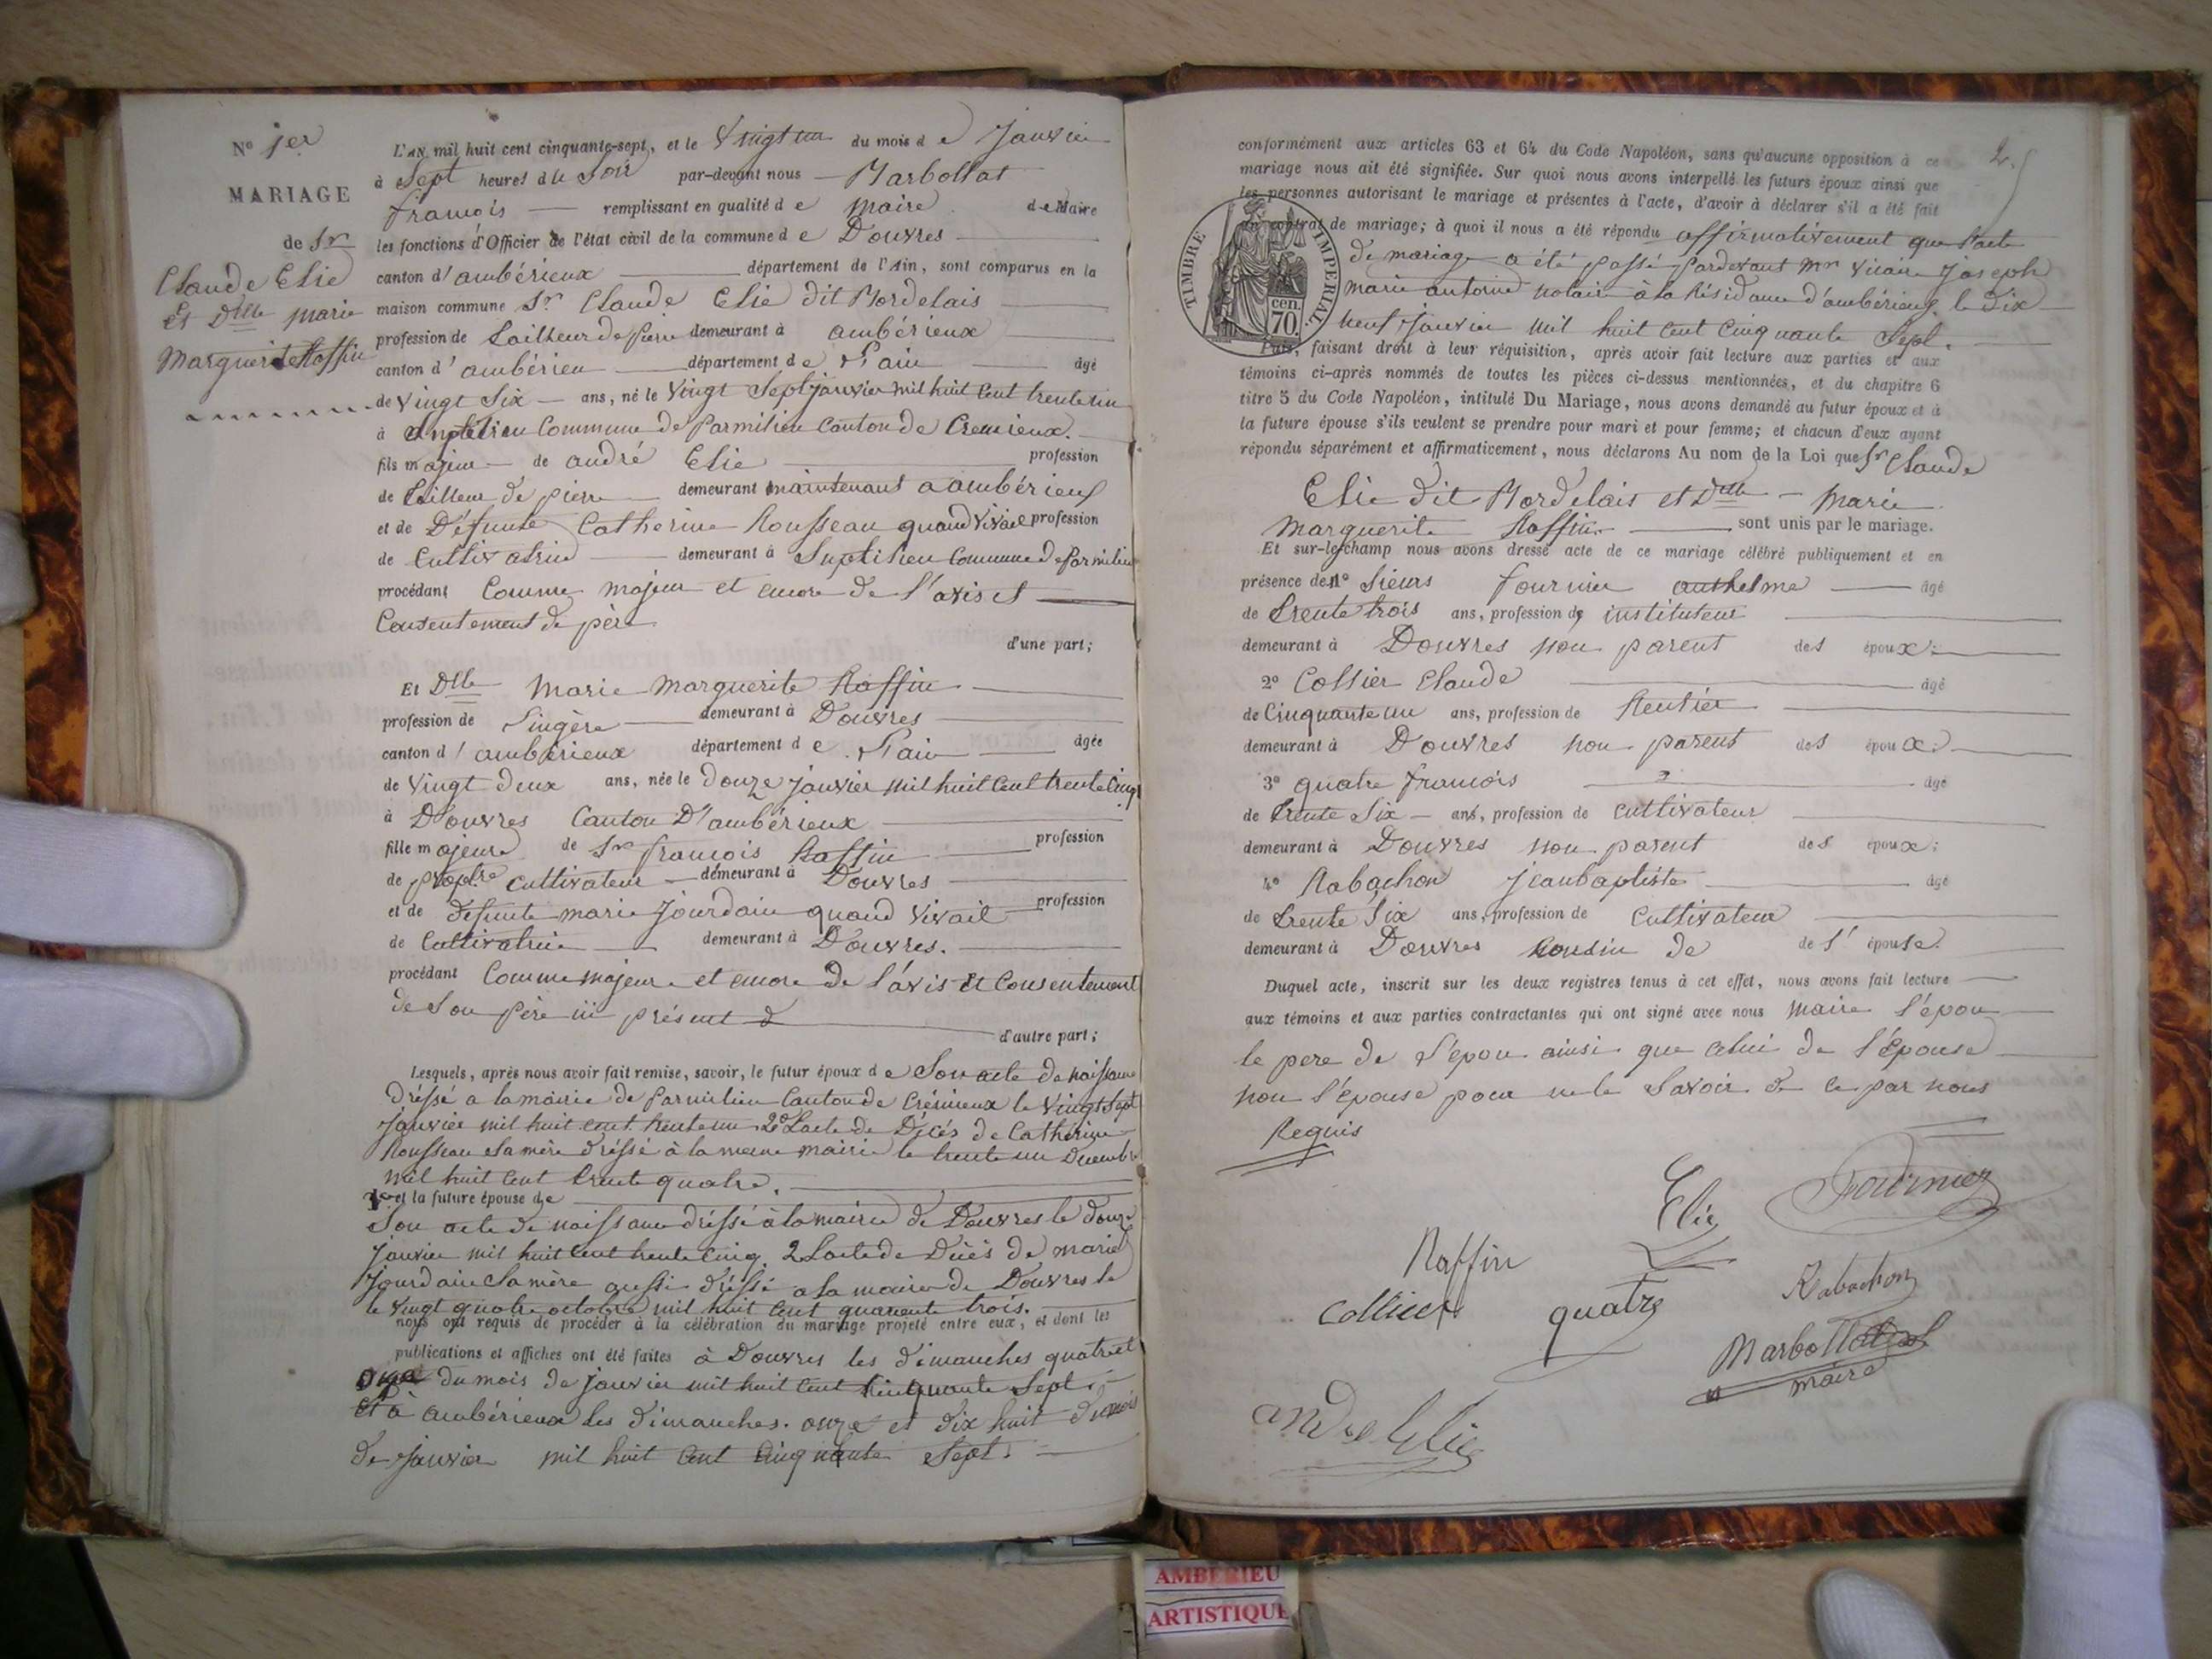 N° 1er
MARIAGE
de Sr
Claude Elie
et Dlle Marie
Marguerite Raffin
L'AN mil huit cent cinquante-sept, et le Vingt un du mois de Janvier
à Sept heures du Soir par-devant nous Marbollat
françois remplissant en qualité de maire de Maire
les fonctions d'Officier de l'état civil de la commune de Douvres
canton d'ambérieux département de l'Ain, sont comparus en la
maison commune Sr Claude Elie dit Mordelais
profession de tailleur de pierre demeurant à ambérieux
canton d'ambérieu département de l'ain âgé
de vingt Six ans, né le vingt Sept janvier mil huit Cent trente un
à Commune de Parmilieu Canton de Cremieux.
fils majeur de andré Elie profession
de tailleur de pierre demeurant maintenant a ambérieux
et de Défunte Catherine Rousseau quand vivait profession
de Cultivatrice demeurant à Commune de Parmilieu
procédant Comme majeur et encore de l'avis et
Consentement de père
d'une part;
Et Dlle Marie Marguerite Raffin
profession de Lingère demeurant à Douvres
canton d'ambérieux département de l'ain âgée
de vingt deux ans, née le douze janvier mil huit Cent trente Cinq
à Douvres Canton D'ambérieux
fille majeure de Sr françois Raffin profession
de proptre cultivateur demeurant à Douvres
et de defunte marie Jourdain quand vivait profession
de Cultivatrice demeurant à Douvres.
procédant Comme majeure et encore de l'avis et Consentement
de Son père ici présent
d'autre part;
Lesquels, après nous avoir fait remise, savoir, le futur époux de Son acte de naissance
dréssé a la mairie de Parmilieu Canton de Crémieux le vingt Sept
janvier mil huit cent trente un 2° L'acte de Décés de Catherine
Rousseau Sa mère dréssé à la meme mairie le trente un Decembre
mil huit Cent trente quatre.
et la future épouse de
Son acte de naissance dréssé à la mairie de Douvres le douze
janvier mil huit Cent trente Cinq. 2 L'acte de Décés de marie
Jourdain Sa mère aussi dréssé a la mairie de Douvres le
le vingt quatre octobre mil huit Cent quarente trois.
nous ont requis de procéder à la célébration du mariage projeté entre eux, et dont les
publications et affiches ont été faites à Douvres les dimanches quatre et
onze du mois de janvier mil huit Cent Cinquante Sept.
et à ambérieux les dimanches. onze et dix huit du mois
de janvier mil huit Cent Cinquante Sept.
2.
conformément aux articles 63 et 64 du Code Napoléon, sans qu'aucune opposition à ce
mariage nous ait été signifiée. Sur quoi nous avons interpellé les futurs époux ainsi que
les personnes autorisant le mariage et présentes à l'acte, d'avoir à déclarer s'il a été fait
un contrat de mariage; à quoi il nous a été répondu affirmativement que l'acte
de mariage a été passé pardevant Mr Joseph
marie antoine notaire à la Résidence d'ambérieux le dix
neuf janvier mil huit Cent Cinquante Sept.
TIMBRE IMPERIAL.
70 cen.
Puis, faisant droit à leur réquisition, après avoir fait lecture aux parties et aux
témoins ci-après nommés de toutes les pièces ci-dessus mentionnées, et du chapitre 6
titre 5 du Code Napoléon, intitulé Du Mariage, nous avons demandé au futur époux et à
la future épouse s'ils veulent se prendre pour mari et pour femme; et chacun d'eux ayant
répondu séparément et affirmativement, nous déclarons Au nom de la Loi que Sr Claude
Elie dit Mordelais et Dlle Marie
Marguerite Raffin. sont unis par le mariage.
Et sur-le-champ nous avons dressé acte de ce mariage célébré publiquement et en
présence de 1° Sieurs fournier anthelme âgé
de trente trois ans, profession de instituteur
demeurant à Douvres non parent des époux;
2° Collier Claude âgé
de Cinquante un ans, profession de Rentier
demeurant à Douvres non parent des époux;
3° quatre françois âgé
de trente Six ans, profession de cultivateur
demeurant à Douvres non parent des époux;
4° Rabachon jean baptiste âgé
de trente Six ans, profession de Cultivateur
demeurant à Douvres Cousin de de l'épouse.
Duquel acte, inscrit sur les deux registres tenus à cet effet, nous avons fait lecture
aux témoins et aux parties contractantes qui ont signé avec nous maire l'époux
le pere de l'époux ainsi que celui de l'épouse
non l'épouse pour ne le Savoir de ce par nous
Requis
Elie Fournier
Raffin Rabachon
Collier quatre
Marbollat
maire
andre Elie
AMBERIEU
ARTISTIQUE